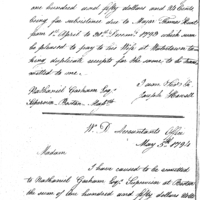 one hundred and fifty dollars and 20 Cents
being for subsistence due to Major Thomas Hunt
from 1st April to 31st Decem. 1793 which sum
be pleased to pay to his Wife at Watertown ta-
king duplicate receipts for the same to be trans-
mitted to me.
I am Sir &c
Joseph Howell
Nathaniel Gorham Esq.
Supervisor Boston Mass.
W. D. Accountants Office
May 5th 1794
Madam
I have caused to be remitted
to Nathaniel Gorham Esq. Supervisor at Boston
the sum of one hundred and fifty dollars